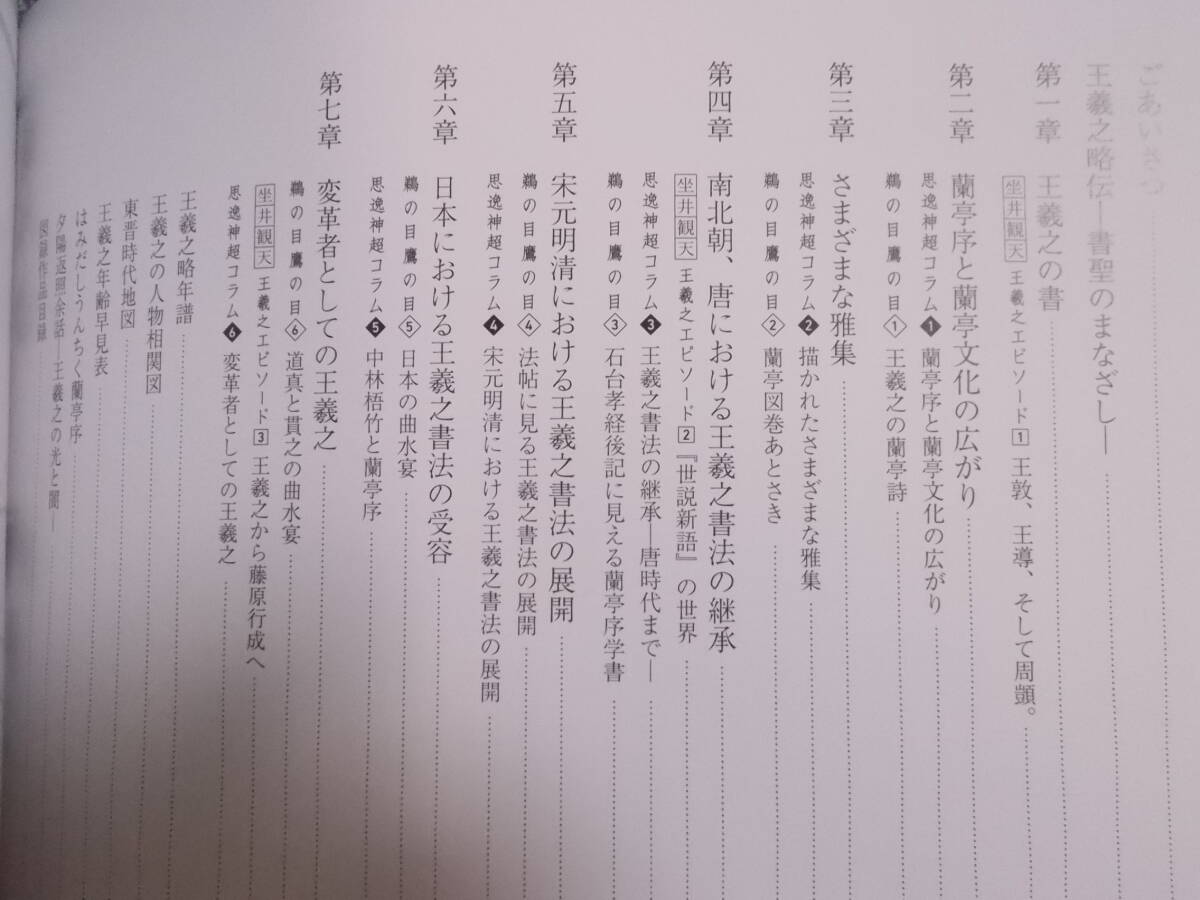 ごあいさつ
王羲之略伝―書聖のまなざし―
第一章　王羲之の書
坐井観天　王羲之エピソード1　王敦、王導、そして周顗。
第二章　蘭亭序と蘭亭文化の広がり
思逸神超コラム❶　蘭亭序と蘭亭文化の広がり
鵜の目鷹の目①　王羲之の蘭亭詩
第三章　さまざまな雅集
思逸神超コラム❷　描かれたさまざまな雅集
鵜の目鷹の目②　蘭亭図巻あとさき
第四章　南北朝、唐における王羲之書法の継承
坐井観天　王羲之エピソード2　『世説新語』の世界
思逸神超コラム❸　王羲之書法の継承―唐時代まで―
鵜の目鷹の目③　石台孝経後記に見える蘭亭序学書
第五章　宋元明清における王羲之書法の展開
鵜の目鷹の目④　法帖に見る王羲之書法の展開
思逸神超コラム❹　宋元明清における王羲之書法の展開
第六章　日本における王羲之書法の受容
鵜の目鷹の目⑤　日本の曲水宴
思逸神超コラム❺　中林梧竹と蘭亭序
第七章　変革者としての王羲之
鵜の目鷹の目⑥　道真と貫之の曲水宴
坐井観天　王羲之エピソード3　王羲之から藤原行成へ
思逸神超コラム❻　変革者としての王羲之
王羲之略年譜
王羲之の人物相関図
東晋時代地図
王羲之年齢早見表
はみだしうんちく蘭亭序
夕陽返照余話―王羲之の光と闇―
図録作品目録